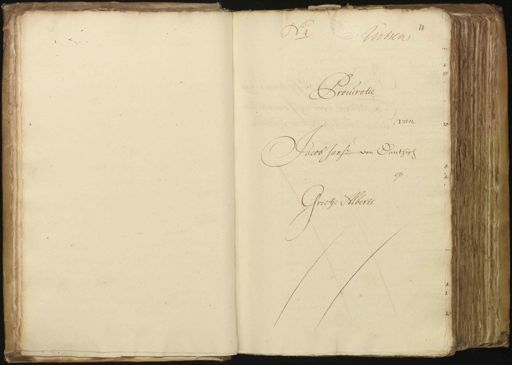 No 1
11
Procuratie
van
Jacob Jansz van Dantzigh
op
Grietje Alberts